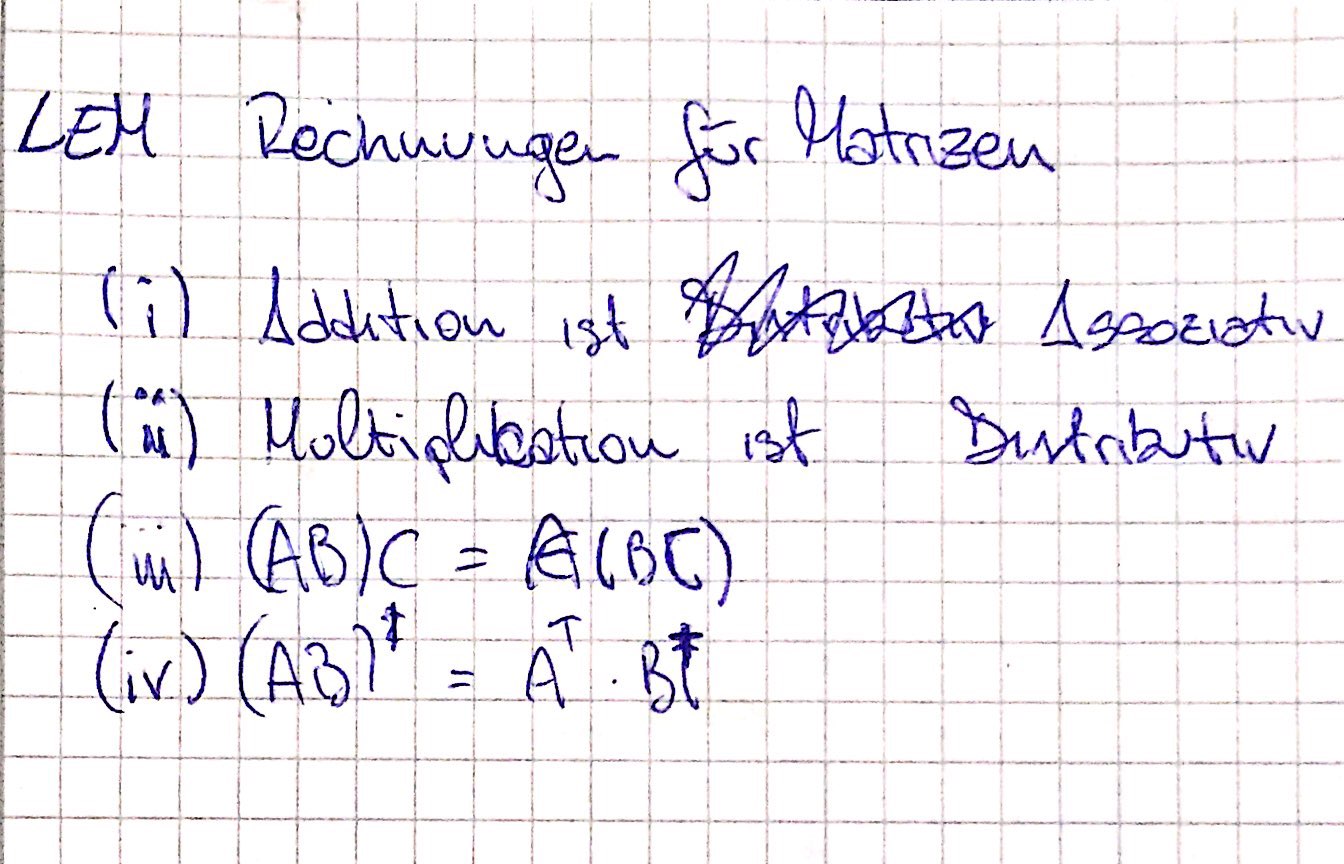 LEM Rechnungen für Matrizen
(i) Addition ist Assoziativ
(ii) Multiplikation ist Distributiv
(iii) (AB)C = A(BC)
(iv) (AB)ᵀ = Aᵀ · Bᵀ